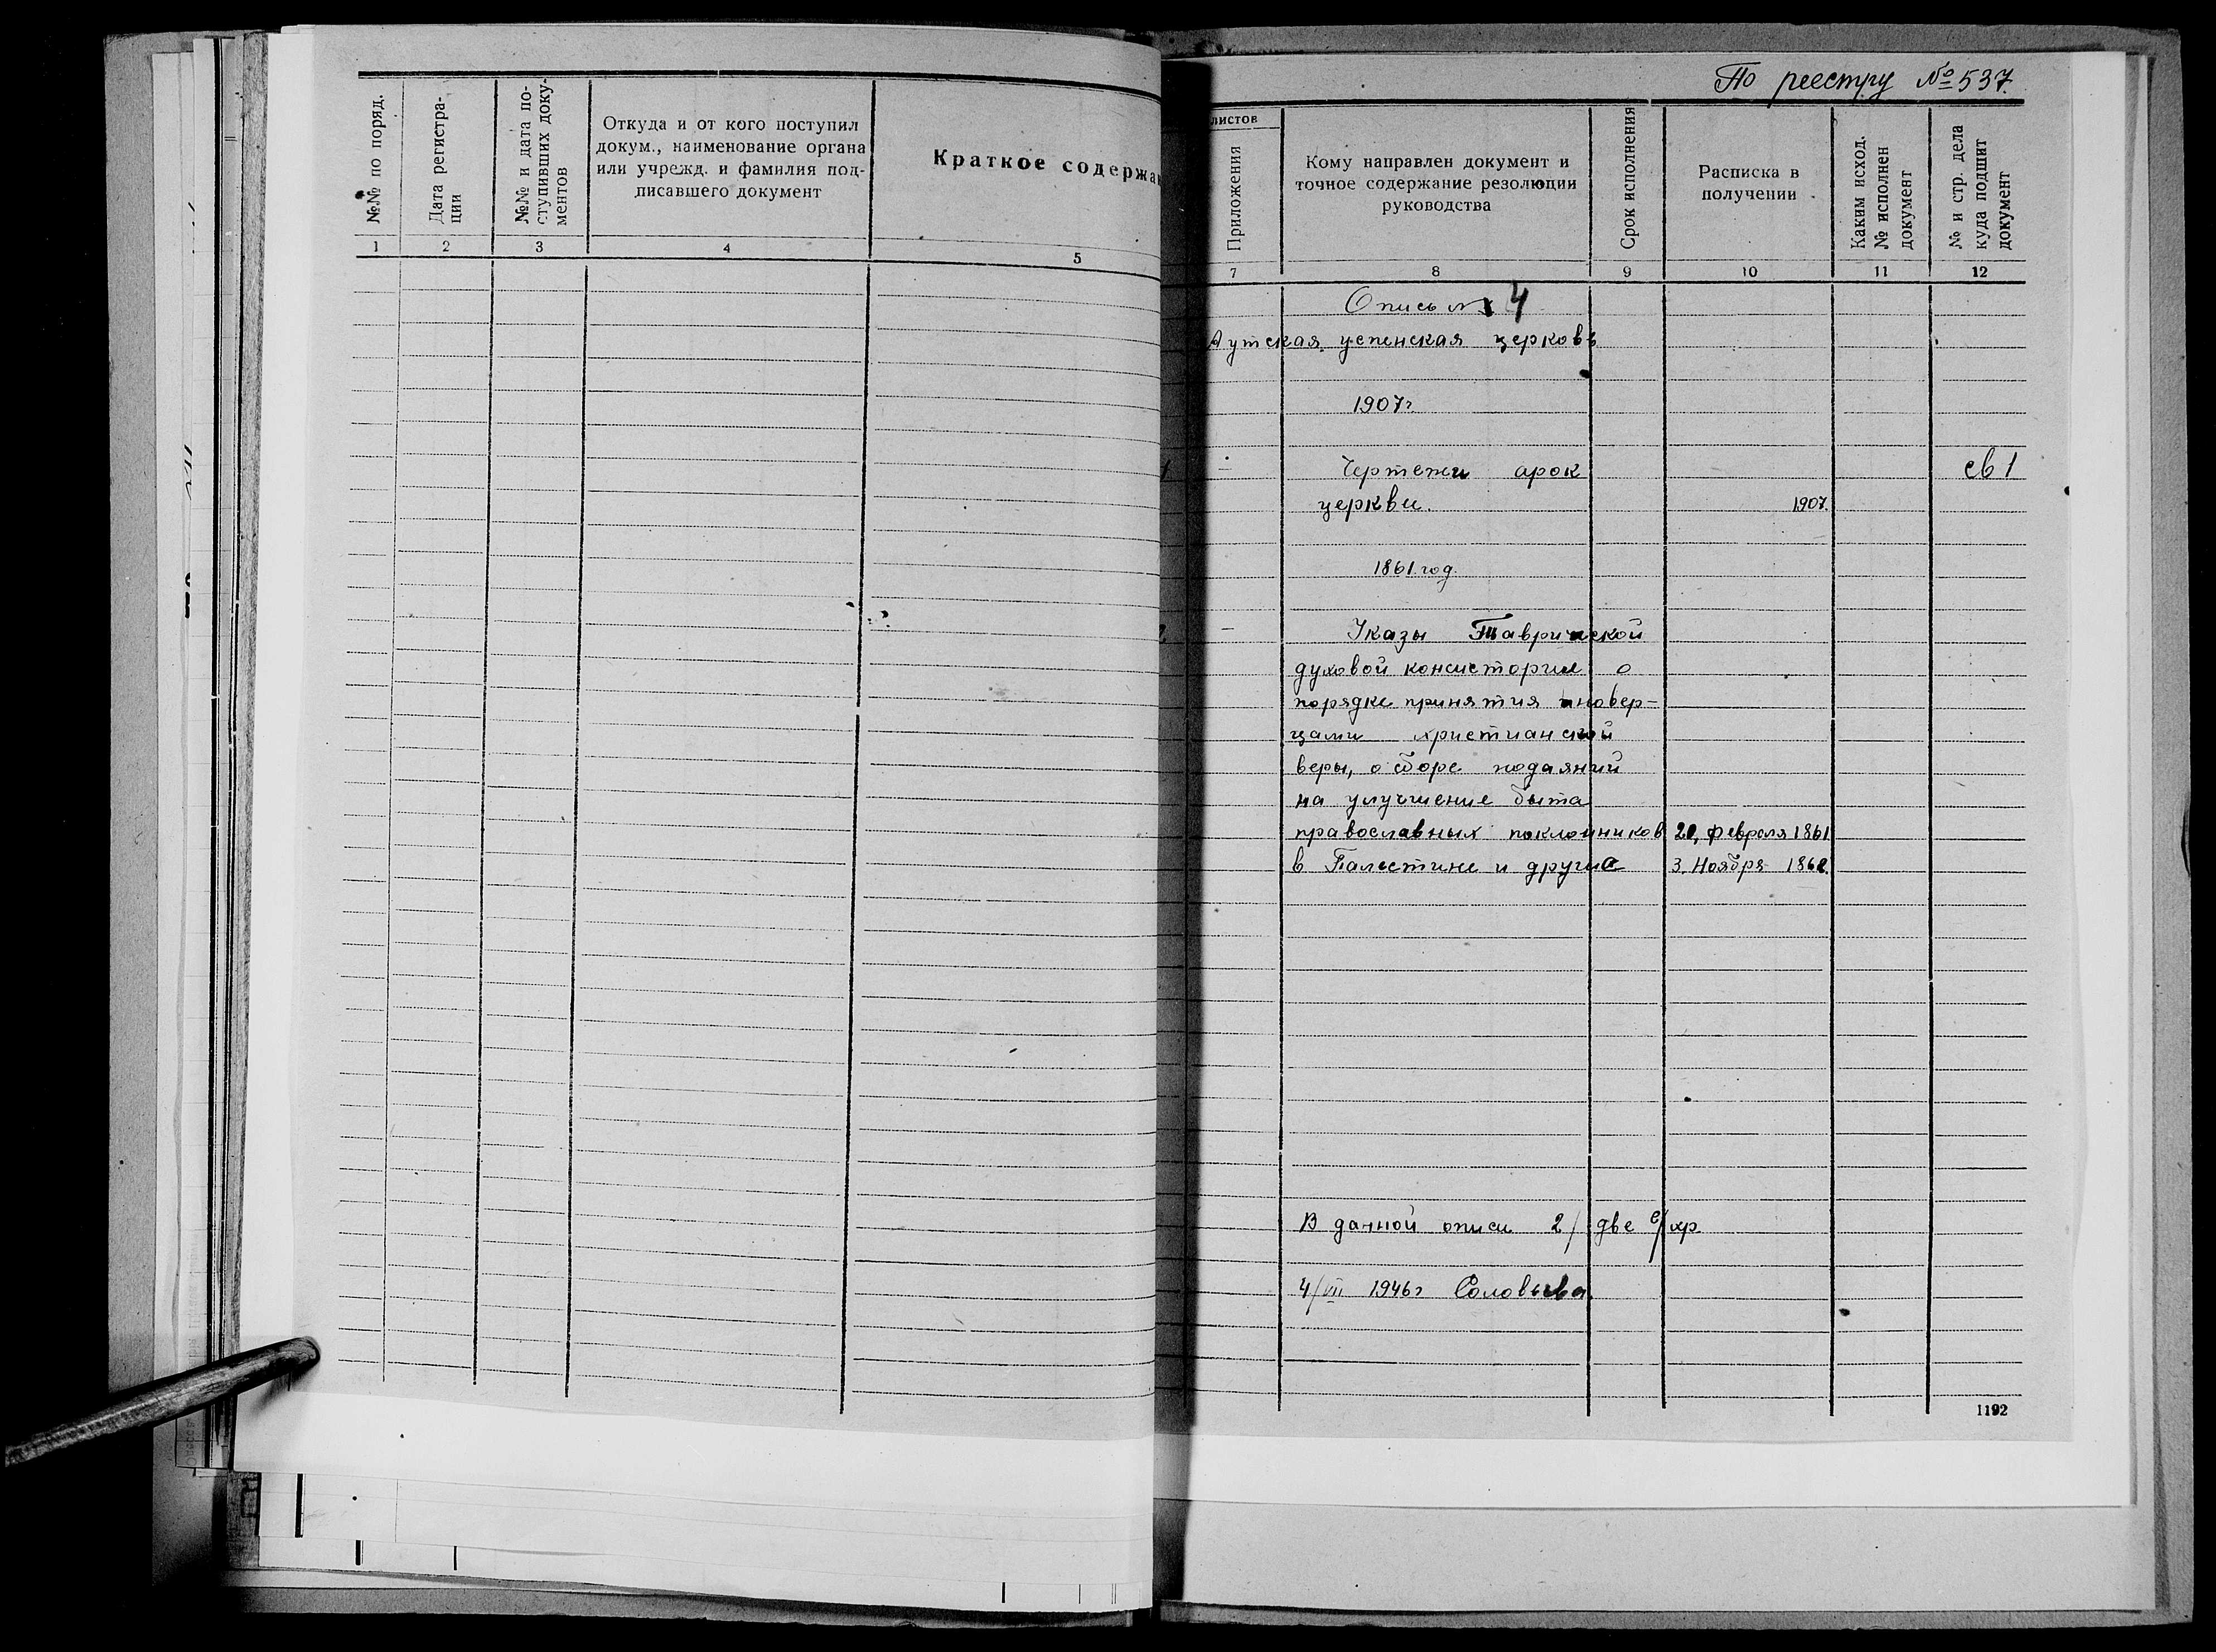 По реестру № 537.
№№ по поряд.
Дата регистра-
ции
№№ и дата по-
ступивших доку-
ментов
Откуда и от кого поступил
докум., наименование органа
или учрежд. и фамилия под-
писавшего документ
Краткое содержа
1 2 3 4 5
листов
Приложения
Кому направлен документ и
точное содержание резолюции
руководства
Срок исполнения
Расписка в
получении
Каким исход.
№ исполнен
документ
№ и стр. дела
куда подшит
документ
7 8 9 10 11 12
Опись № 4
Аутская успенская церковь
1907г
1 — Чертежи арок св 1
церкви. 1907.
1861 год.
2. — Указы Таврической
духовой консистории о
порядке принятия иновер-
цами христианской
веры, о сборе подаяний
на улучшение быта
православных поклонников 20, февраля 1861
в Палестине и другие 3. Ноября 1861.
В данной описи 2/ две е/хр
4/VII 1946г Соловьева.
1192